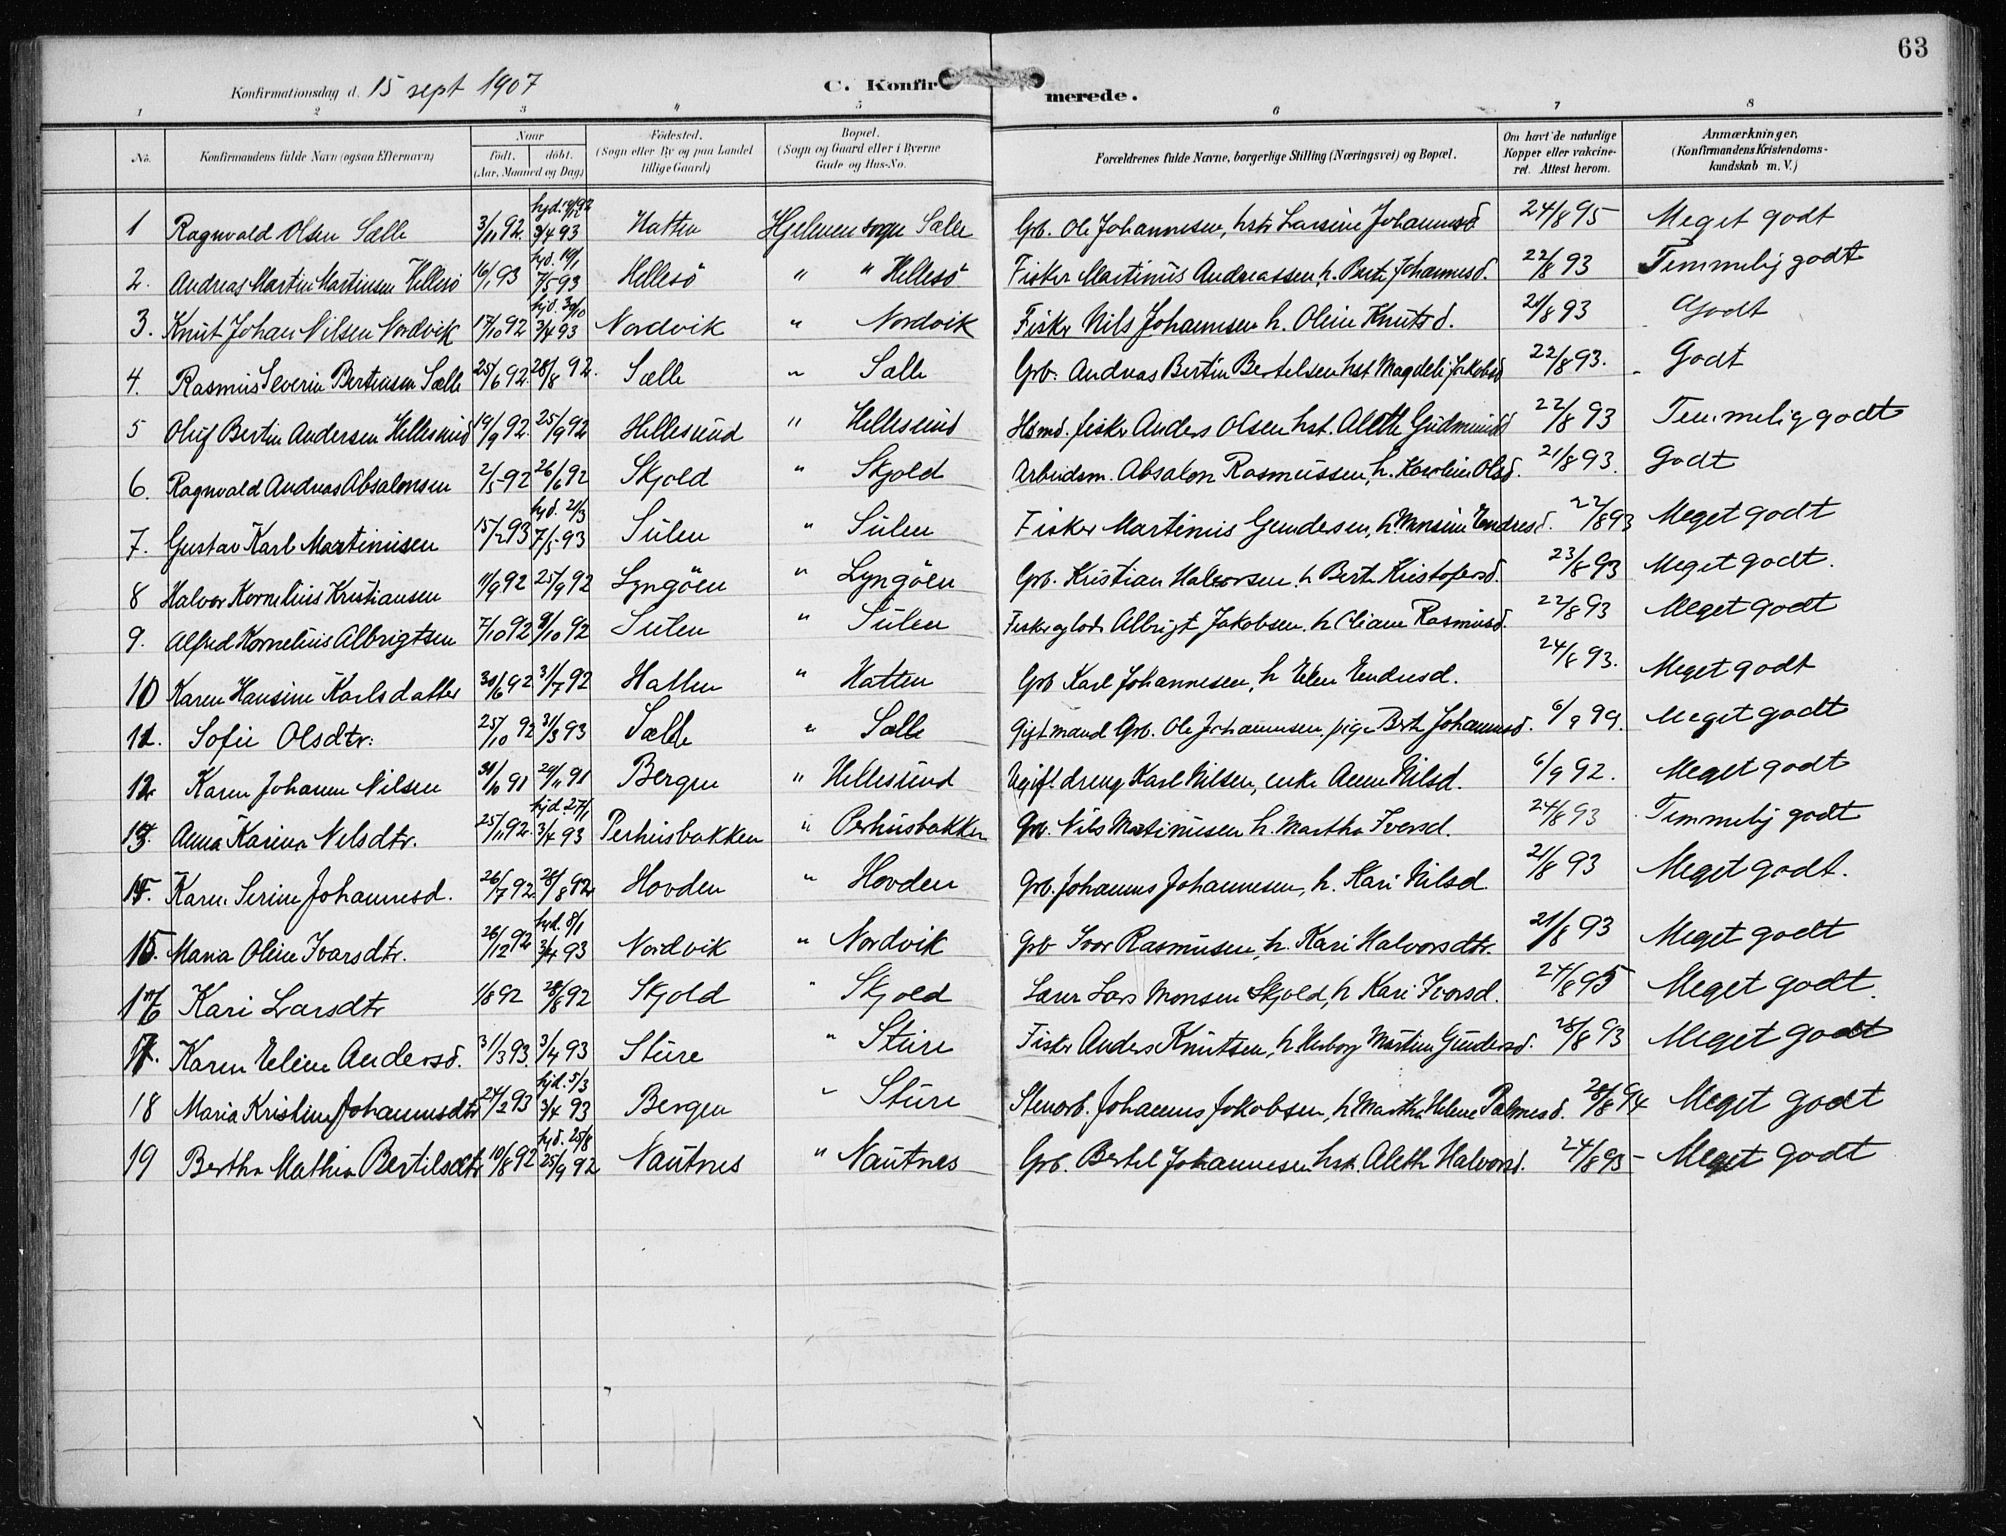 63
Konfirmationsdag d. 15 sept 1907 C. Konfirmerede.
1 2 3 4 5 6 7 8
No. Konfirmandens fulde Navn (ogsaa Efternavn) Naar født. døbt. (Aar, Maaned og Dag) Fødested. (Sogn eller By og paa Landet tillige Gaard) Bopæl. (Sogn og Gaard eller i Byerne Gade og Hus-No. Forældrenes fulde Navne, borgerlige Stilling (Næringsvei) og Bopæl. Om havt de naturlige Kopper eller vakcineret. Attest herom. Anmærkninger, (Konfirmandens Kristendomskundskab m. V.)
1 Ragnvald Olsen Sælle 3/11 92. hjd. 3/4 93 Hatten Hjelmen sogn Sælle Grb. Ole Johannesen, hstr Larsine Johannesd 24/8 95 Meget godt
2. Andreas Martin Martinsen Hellesö 16/1 93 hjd. 19/1 7/5 93 Hellesö " " Hellesö Fisker Martinus Andreassen, h. Berte Johannesd. 22/8 93 Temmelig godt
3. Knut Johan Nilsen Nordvik 17/10 92 hjd. 30/10 3/4 93 Nordvik " Nordvik Fisker Nils Johannesen h. Oline Knutsd. 21/8 93 Godt
4. Rasmus Severin Bertinsen Sælle 25/6 92 28/8 92. Sælle " Sælle Grb. Andreas Bertin Bertelsen hst Magdeli Jakobsd 22/8 93. Godt
5 Oluf Bertin Andersen Hellesund 19/9 92. 25/9 92 Hellesund " Hellesund Hsmd. fisker Anders Olsen hst. Alette Gudmundsd 22/8 93 Temmelig godt
6. Ragnvald Andreas Absalonsen 2/5 92 26/6 92 Skjold " Skjold Arbeidsm. Absalon Rasmussen, h. Karoline Olsd. 21/8 93. Godt
7. Gustav Karl Martinusen 15/2 93 hjd. 2/3 7/5 93 Sulen " Sulen Fisker Martinus Gundersen, h. Monsine Endresd. 22/8 93 Meget godt
8 Halvor Kornelius Kristiansen 11/9 92 25/9 92 Lyngöen " Lyngöen Grb. Kristian Halvorsen. h Berte Kristofersd. 23/8 93 Meget godt.
9. Alfred Kornelius Albrigtsen 7/10 92 9/10 92 Sulen " Sulen Fisker og lods Albrigt Jakobsen. h Oliane Rasmusd. 22/8 93 Meget godt
10 Karen Hansine Karlsdatter 30/6 92 31/7 92 Hatten " Hatten Grb Karl Johannesen, h Elen Endresd. 24/8 93. Meget godt
11. Sofie Olsdtr: 25/10 92 31/3 93 Sælle " Sælle Gift mand Grb. Ole Johannesen, pige Berte Johannesd. 6/9 99. Meget godt
12 Karen Johanne Nilsen 31/10 91 29/11 91 Bergen " Hellesund Ugift dreng Karl Nilsen, enke Anne Nilsd. 6/9 92. Meget godt
13. Anna Karina Nilsdtr. 25/11 92. hjd. 27/1 3/4 93 Perhusbakken " Perhusbakken Grb. Nils Martinusen h. Martha Iversd. 24/8 93 Temmelig godt
Karen Serine Johannesd. 26/7 92 28/8 92 Hovden " Hovden Grb. Johannes Johannesen, h. Kari Nilsd 21/8 93 Meget godt.
15. Maria Oline Ivarsdtr. 26/12 92 hjd. 8/1 3/4 93 Nordvik " Nordvik Grb Ivar Rasmusen, h. Kari Halvorsdtr. 21/8 93 Meget godt
16 Kari Larsdtr 1/8 92 28/8 92 Skjold " Skjold Lærer Lars Monsen Skjold, h Kari Iversd. 24/8 95 Meget godt.
17. Karen Eline Andersd. 31/3 93. 3/4 93 Sture " Sture Fisker Anders Knutsen, h. Herborg Martine Gundersd. 28/8 93 Meget godt
18 Maria Kristine Johannesdtr 24/2 93 hjd. 5/3 3/4 93 Bergen " Sture Stenarb. Johannes Jakobsen, h Martha Helene Palmesd. 28/8 94 Meget godt
19 Bertha Mathia Bertilsdtr 10/8 92 hjd. 25/8 25/9 92 Nautnes " Nautnes Grb. Bertel Johannesen hst. Alethe Halvorsd. 24/8 93 - Meget godt